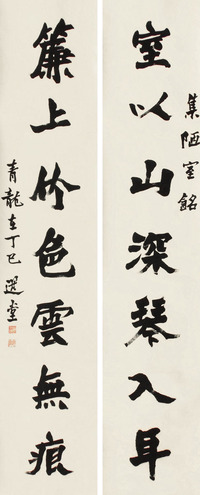 集陋室銘
室以山深琴入耳
簾上竹色雲無痕
青龍在丁巳 選堂